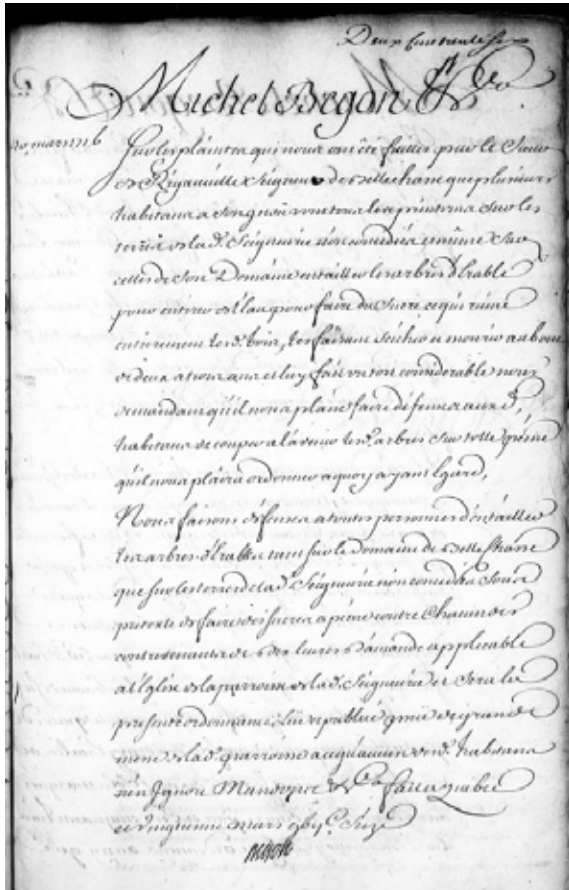 Deux cent
Michel Begon &c
20 mars 1716
Sur les plaintes qui nous ont été faittes par le Sieur
de Rigauville Seigneur de Bellechasse que plusieurs
habitans vont tous les printems sur les
terres de lad. Seigneurie non concedées et même sur
celles de Son Domaine entailler les arbres d'Erable
pour en tirer de l'eau pour faire du Sucre ce qui ruine
entierement lesd. bois, les faisant seicher et mourir au bout
de deux a trois ans et luy fait un tort considerable nous
demandant qu'il nous plaise faire défenses auxd.
habitans de couper a l'avenir lesd. arbres sur telle peine
qu'il nous plaira ordonner a quoy ayant Egard,
Nous faisons défenses a toutes personnes d'entailler
les arbres d'Erables tant sur le Domaine de Bellechasse
que sur les terres de lad. Seigneurie non concedées Sous
pretexte de faire des sucres a peine contre Chacun des
contrevenants de dix livres d'amande applicable
a l'Eglise de la parroisse de lad. Seigneurie et Sera la
presente ordonnance lüe et publiée issüe de grande
messe de lad. parroisse a ce qu'aucun desd. habitans
n'en Ignore Mandons &ca fait a Quebec
ce vingtieme mars Seize